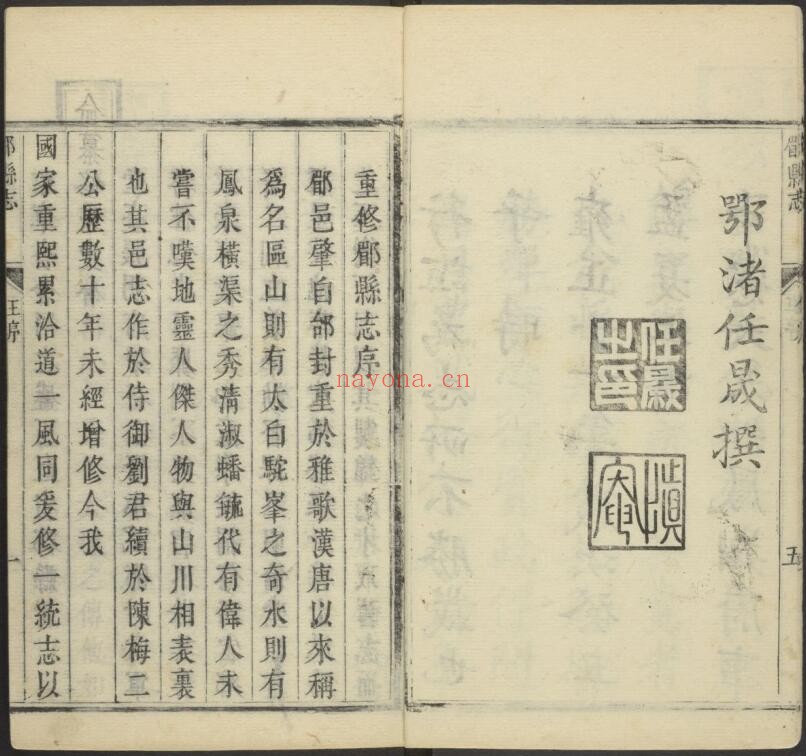 郿縣志
五
鄂渚任晟撰
任晟之印
重修郿縣志序
郿邑肇自邰封重於雅歌漢唐以來稱
爲名區山則有太白駝峯之奇水則有
鳳泉橫渠之秀清淑蟠毓代有偉人未
嘗不嘆地靈人傑人物與山川相表裏
也其邑志作於侍御劉君續於陳梅二
公歷數十年未經增修今我
國家重熙累洽道一風同爰修一統志以
郿縣志
序
一
nayona.cn